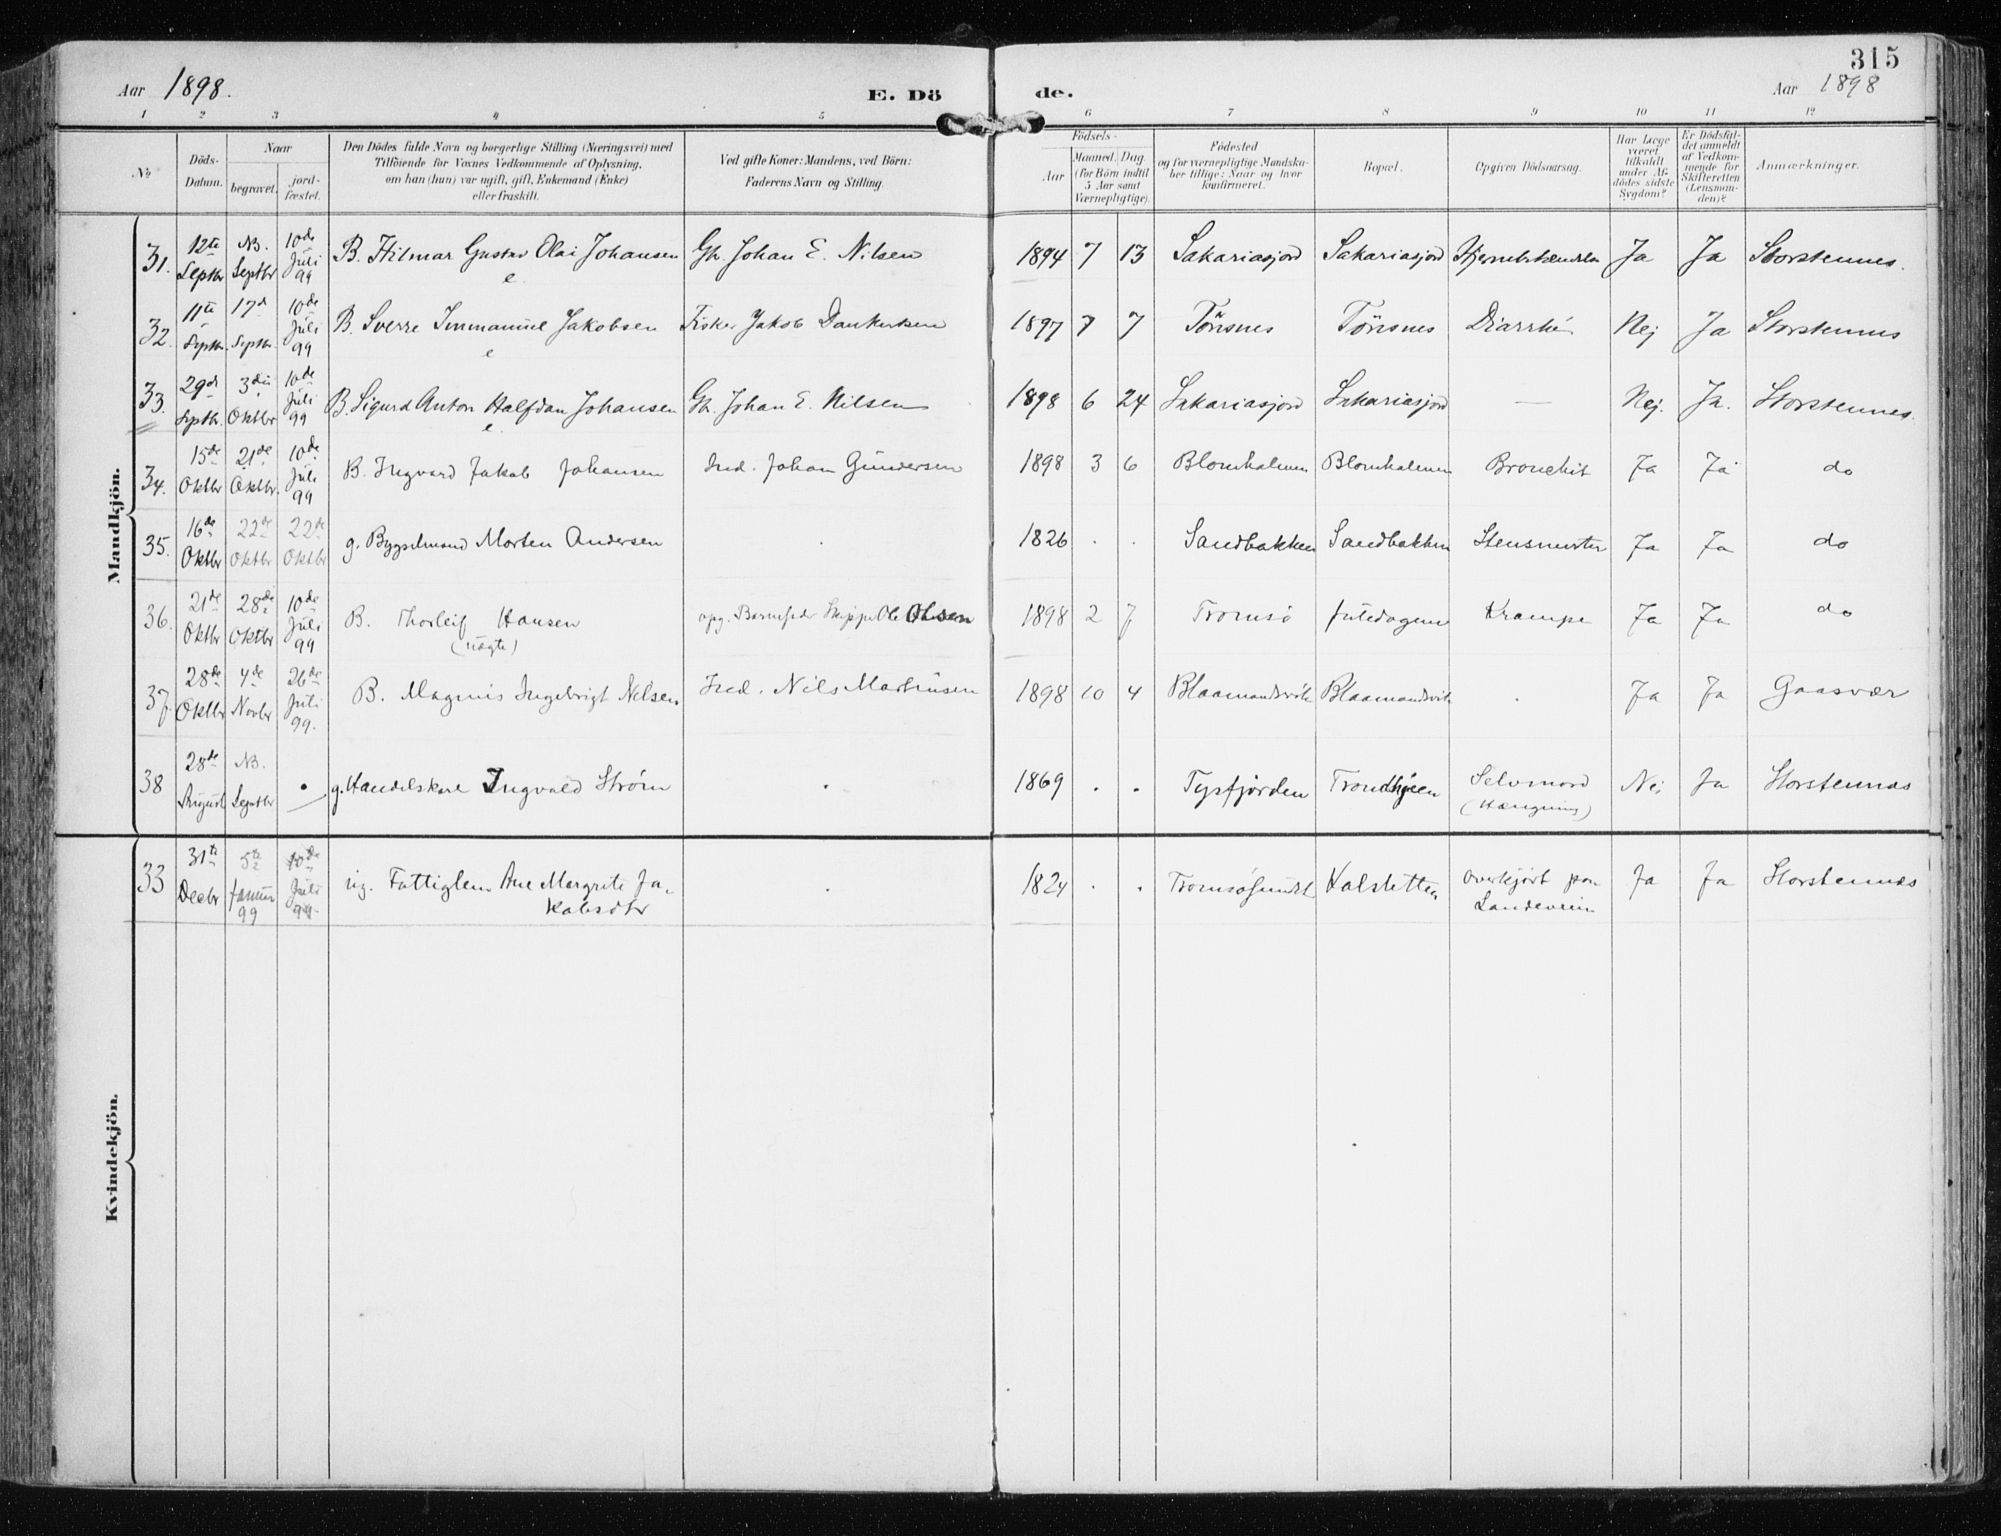 315
Aar 1898.
E. Dö de.
Aar 1898
1 2 3 4 5 6 7 8 9 10 11 12
No
Döds-
Datum.
Naar
begravet.
jord-
fæstet.
Den Dödes fulde Navn og borgerlige Stilling (Næringsvei) med
Tilföiende for Voxnes Vedkommende af Oplysning,
om han (hun) var ugift, gift, Enkemand (Enke)
eller fraskilt.
Ved gifte Koner: Mandens, ved Börn:
Faderens Navn og Stilling.
Födsels-
Aar
Maaned. Dag.
(for Börn indtil
5 Aar samt
Værnepligtige).
Födested
og for værnepligtige Mandska-
ber tillige: Naar og hvor
konfirmeret.
Bopæl.
Opgiven Dödsaarsag.
Har Læge
været
tilkaldt
under Af-
dödes sidste
Sygdom?
Er Dödsfal-
det anmeldt
af Vedkom-
mende for
Skifteretten
(Lensman-
den)?
Anmærkninger.
Mandkjön.
31. 12te Septbr NB. Septbr 10de Juli 99 B. Hilmar Gustav Olai Johansen Gb. Johan E. Nilsen 1894 7 13 Sakariasjord Sakariasjord Ja Ja Storstennes.
e.
32. 11te Septbr. 17d Septbr. 10de Juli 99 B. Sverre Immanuel Jakobsen Fisker Jakob Dankertsen 1897 7 7 Tönsnes Tönsnes Diarrhé Nej Ja Storstennes
e
33. 29de Septbr. 3die Oktbr 10de Juli 99 B. Sigurd Anton Halfdan Johansen Gb. Johan E. Nilsen 1898 6 24 Sakariasjord Sakariasjord — Nej. Ja. Storstennes.
e.
34. 15de Oktbr 21de Oktbr. 10de Juli 99 B. Ingvard Jakob Johansen Ind. Johan Gundersen 1898 3 6 Blomholmen Blomholmen Bronchit Ja Ja do
35. 16de Oktbr 22de Oktbr 22de Oktbr g. Bygselmand Morten Andersen 1826 . . Sandbakken Sandbakken Ja Ja do
36. 21de Oktbr 28de Oktbr 10de Juli 99 B. Thorleif Hansen opg. Barnefader Skipper Ole Olsen 1898 2 7 Tromsö Krampe Ja Ja do
(uægte)
37. 28de Oktbr 4de Novbr 26de Juli 99. B. Magnus Ingebrigt Nilsen Ind. Nils Martinusen 1898 10 4 Blaamandsvik Blaamandsvik . Ja Ja Gaasvær
38 28de August NB. Septbr . g. Handelskarl Ingvald Strøm . 1869 . . Tysfjorden Trondhjem Selvmord Nei Ja Storstennes
(Hængning)
Kvindekjön.
33 31te Decbr 5te Januar 99 10de Juli 99. ug. Fattiglem Ane Margrete Ja- . 1824 . . Tromsøsund Kalsletten overkjört paa Ja Ja Storstennes
kobsdtr Landeveien